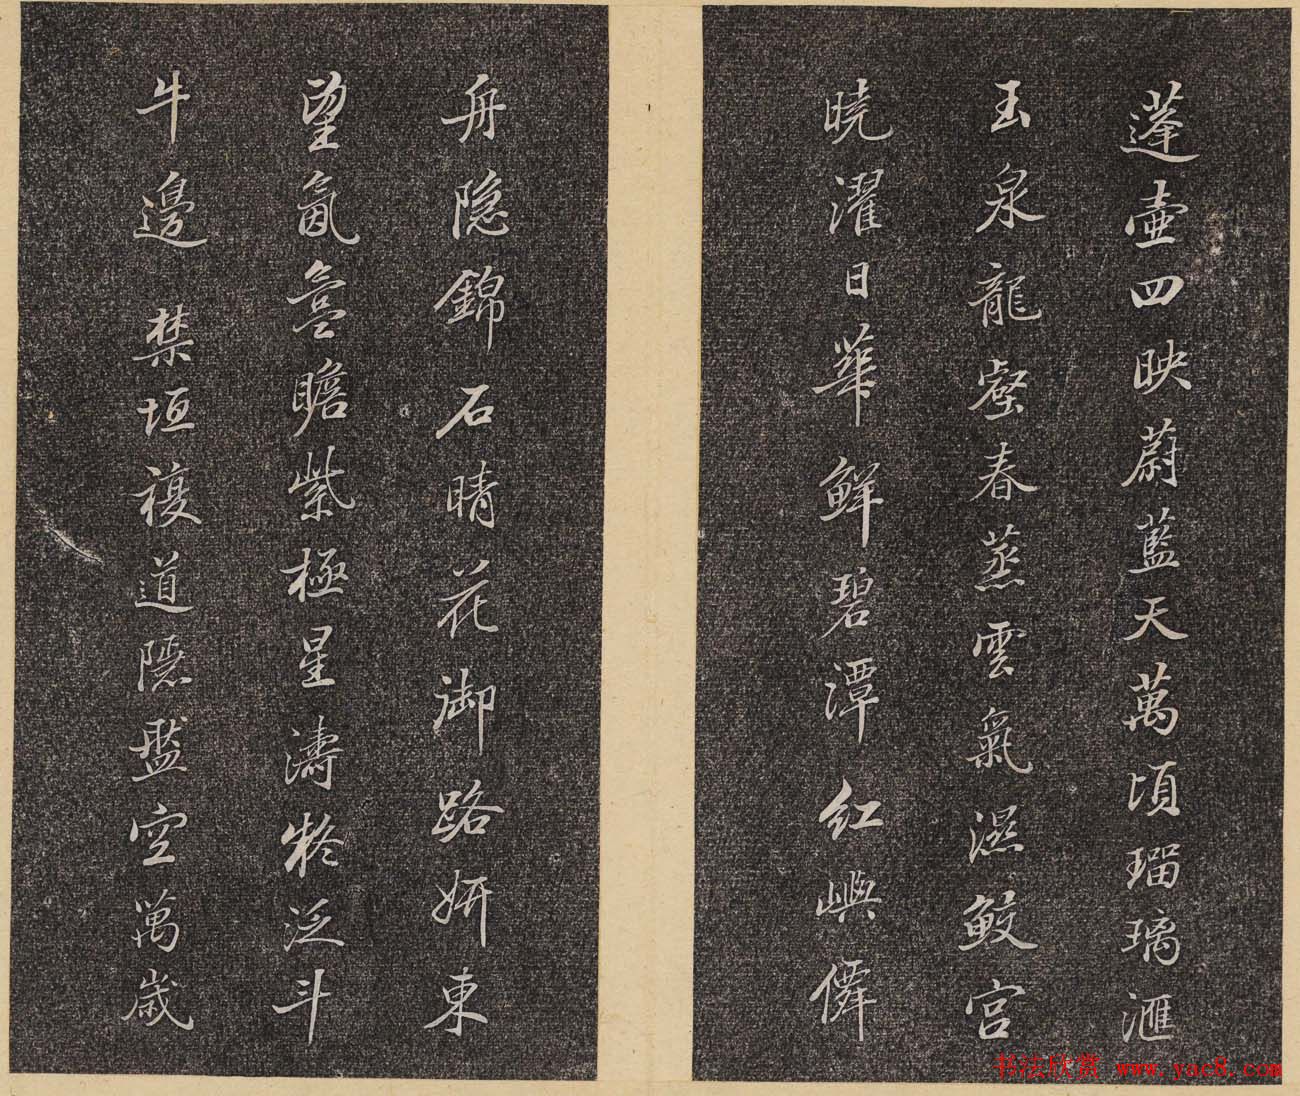 蓬壺四映蔚藍天萬頃瑠璃滙
玉泉龍壑春蒸雲氣濕鮫宮
曉濯日華鮮碧潭紅嶼儕
舟隐錦石晴花御路妍東
望氤氳瞻紫極星濤槎泛斗
牛邊 禁垣複道隱
空萬歲
书法欣赏 www.yac8.com